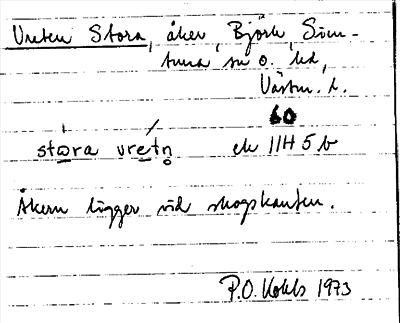 Vreten Stora, åker, Björk Sim-
tuna sn o. hd,
Västm. l.
60
stωra vretn̥ ek 11H 5b
Åkern ligger vid skogskanten.
P.O. Kohls 1973